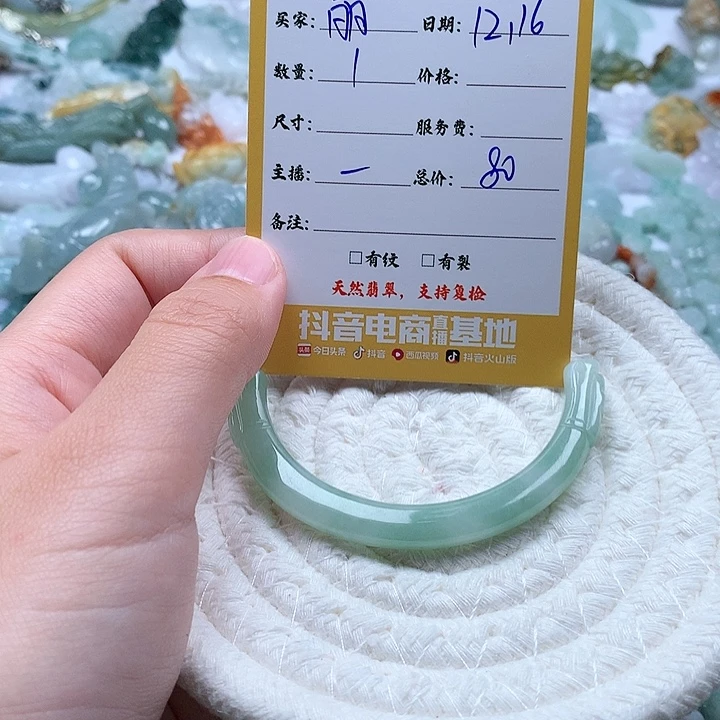 买家: 丽 日期: 12,16
数量: 1 价格:
尺寸: 服务费:
主播: 一 总价: 80
备注:
□有纹 □有裂
天然翡翠，支持复检
抖音电商直播基地
头条 今日头条 抖音 西瓜视频 抖音火山版